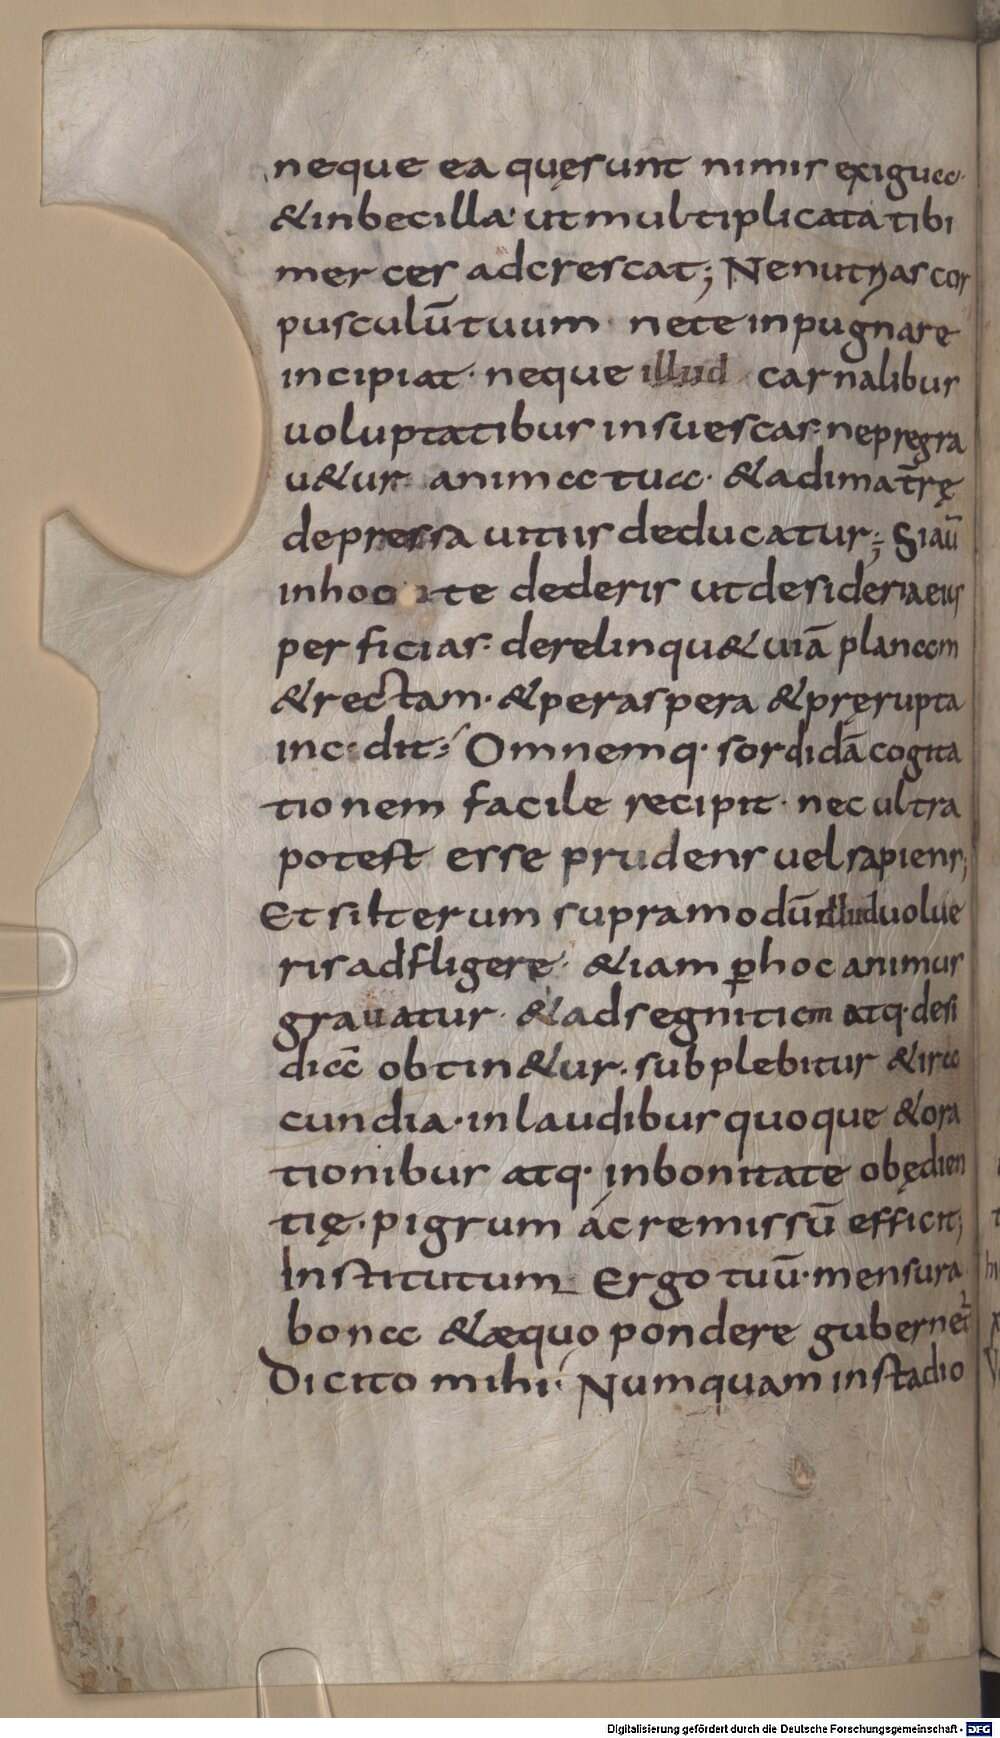 neque ea quęsunt nimis exigua·
&inbecilla· utmultiplicata tibi
merces adcrescat; Nenutrias cor
pusculūtuum· nete inpugnare
incipiat· neque illud carnalibus
uoluptatibus insuescas· nepregra
u&ur anima tua· &adimat̄rę
depressa uitiis deducatur; Siaū
inhoc te dederis utdesideriaeius
perficias· derelinqu&uiā planam
&rectam· &peraspera &pręrupta
incedit; Omnemq· sordidācogita
tionem facile recipit· nec ultra
potest esse prudens uelsapiens;
Etsiiterum supramodūilluduolue
risadfligere· &iam ꝑhoc animus
grauatur· &adsegnitiem atq·desi
diā obtin&ur· subplebitur &ira
cundia· inlaudibus quoque &ora
tionibus atq· inbonitate obędien
tię· pigrum ac remissū efficit;
Institutum Ergo tuū·mensura
bona &æquo pondere gubernet̄
Dicito mihi· Numquam instadio
Digitalisierung gefördert durch die Deutsche Forschungsgemeinschaft - DFG